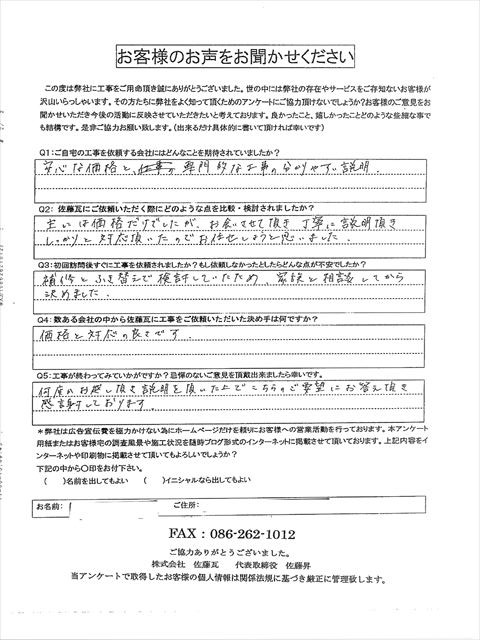 お客様のお声をお聞かせください
この度は弊社に工事をご用命頂き誠にありがとうございました。世の中には弊社の存在やサービスをご存知ないお客様が
沢山いらっしゃいます。その方たちに弊社をよく知って頂くためのアンケートにご協力頂けないでしょうか?お客様のご意見をお
聞かせいただき今後の活動に反映させていただきたいと考えております。良かったこと、嬉しかったことどのような些細な事で
も結構です。是非ご協力お願い致します。(出来るだけ具体的に書いて頂ければ幸いです)
Q1:ご自宅の工事を依頼する会社にはどんなことを期待されていましたか?
安心な価格と、専門的な工事の分りやすい説明.
Q2:佐藤瓦にご依頼いただく際にどのような点を比較・検討されましたか?
主には価格だけでしたが、お会いさせて頂き丁寧に説明頂き
しっかりと対応頂いたのでお任せしようと思いました.
Q3:初回訪問後すぐに工事を依頼されましたか?もし依頼しなかったとしたらどんな点が不安でしたか?
補修とふき替えで検討していたため、家族と相談してから
決めました.
Q4:数ある会社の中から佐藤瓦に工事をご依頼いただいた決め手は何ですか?
価格と対応の良さです.
Q5:工事が終わってみていかがですか?忌憚のないご意見を頂戴出来ましたら幸いです。
何度もお越し頂き説明を頂いた上でこちらのご要望にお答え頂き
感謝しております.
*弊社は広告宣伝費を極力かけない為にホームページだけを頼りにお客様への営業活動を行っております。本アンケート
用紙またはお客様宅の調査風景や施工状況を随時ブログ形式のインターネットに掲載させて頂いております。上記内容をイ
ンターネットや印刷物に掲載させて頂いてもよろしいでしょうか?
下記の中から〇印をお付下さい。
( )名前を出してもよい ( )イニシャルなら出してもよい
お名前: ご住所:
FAX:086-262-1012
ご協力ありがとうございました。
株式会社 佐藤瓦 代表取締役 佐藤昇
当アンケートで取得したお客様の個人情報は関係法規に基づき厳正に管理致します。